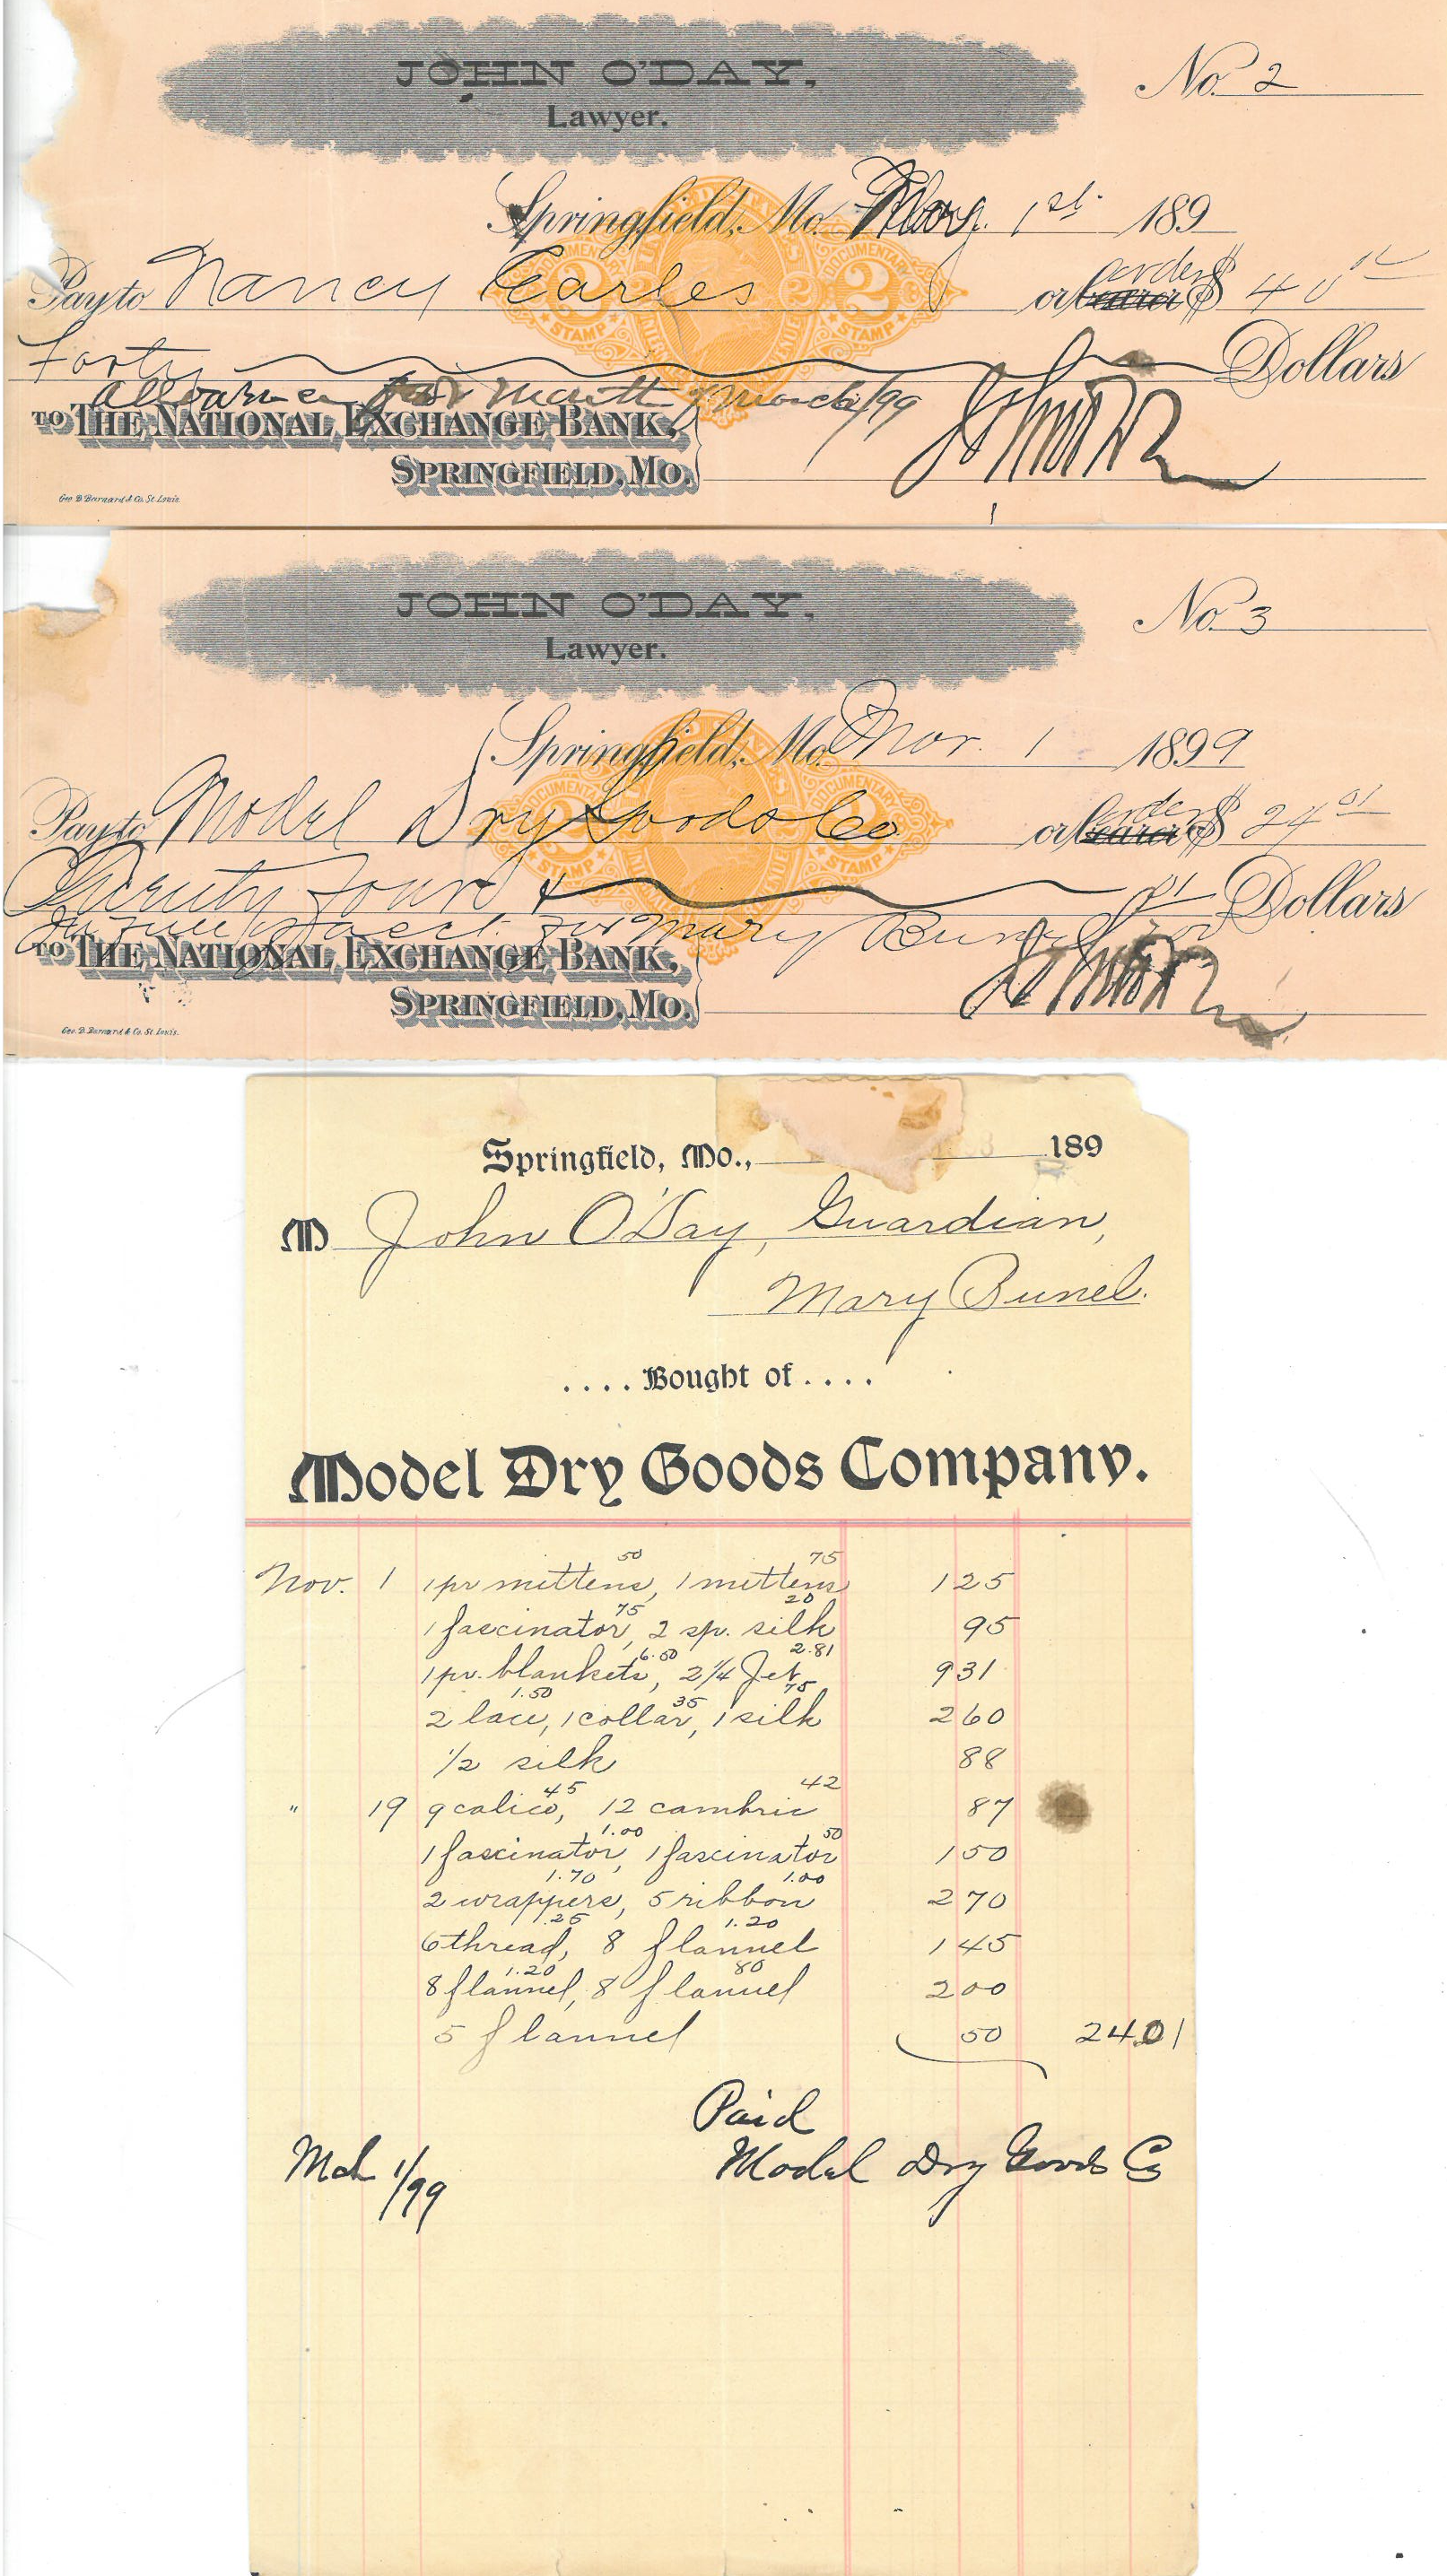 JOHN O'DAY,
Lawyer.
No. 2
Springfield, Mo. 1st 189
Pay to Nancy Earles or bearer order $ 40
Forty Dollars
allowance for Month of March/99
TO THE NATIONAL EXCHANGE BANK,
SPRINGFIELD, MO.
Geo. D. Barnard & Co. St. Louis.
DOCUMENTARY
2
STAMP
DOCUMENTARY
2
STAMP
JOHN O'DAY,
Lawyer.
No. 3
Springfield, Mo. Mar. 1 1899
Pay to Model Dry Goods Co or bearer order $ 24 01
Twenty four & 01 Dollars
In full of acct. for Mary
TO THE NATIONAL EXCHANGE BANK,
SPRINGFIELD, MO.
Geo. D. Barnard & Co. St. Louis.
DOCUMENTARY
2
STAMP
DOCUMENTARY
2
STAMP
Springfield, Mo., 189
M John O'Day, Guardian,
Mary Bunel.
.... Bought of ....
Model Dry Goods Company.
Nov. 1 1 pr mittens, 50 1 mittens 75 1 25
1 fascinator, 75 2 sp. silk 20 95
1 pr. blankets, 6.50 2 1/4 Jet 2.81 9 31
2 lace, 1.50 1 collar, 35 1 silk 75 2 60
1/2 silk 88
" 19 9 calico, 45 12 cambric 42 87
1 fascinator, 1.00 1 fascinator 50 1 50
2 wrappers, 1.70 5 ribbon 1.00 2 70
6 thread, .25 8 flannel 1.20 1 45
8 flannel, 1.20 8 flannel 80 2 00
5 flannel 50 24.01
Paid
Mch 1/99 Model Dry Goods Co